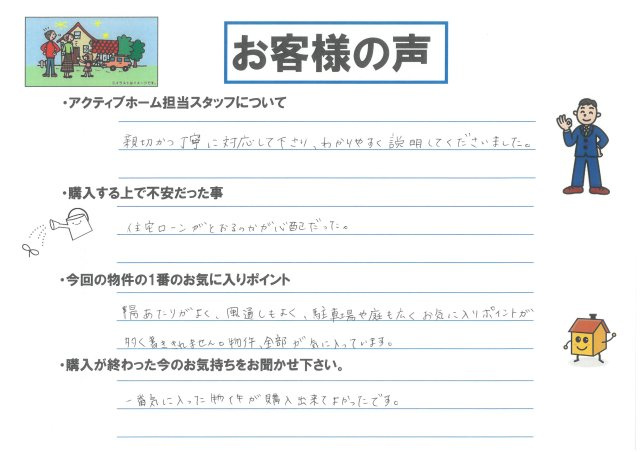 お客様の声
・アクティブホーム担当スタッフについて
親切かつ丁寧に対応して下さり、わかりやすく説明してくださいました。
・購入する上で不安だった事
住宅ローンがとおるのかが心配だった。
・今回の物件の1番のお気に入りポイント
陽あたりがよく、風通しもよく、駐車場や庭も広くお気に入りポイントが
多く書ききれません。物件、全部が気に入っています。
・購入が終わった今のお気持ちをお聞かせ下さい。
一番気に入った物件が購入出来てよかったです。